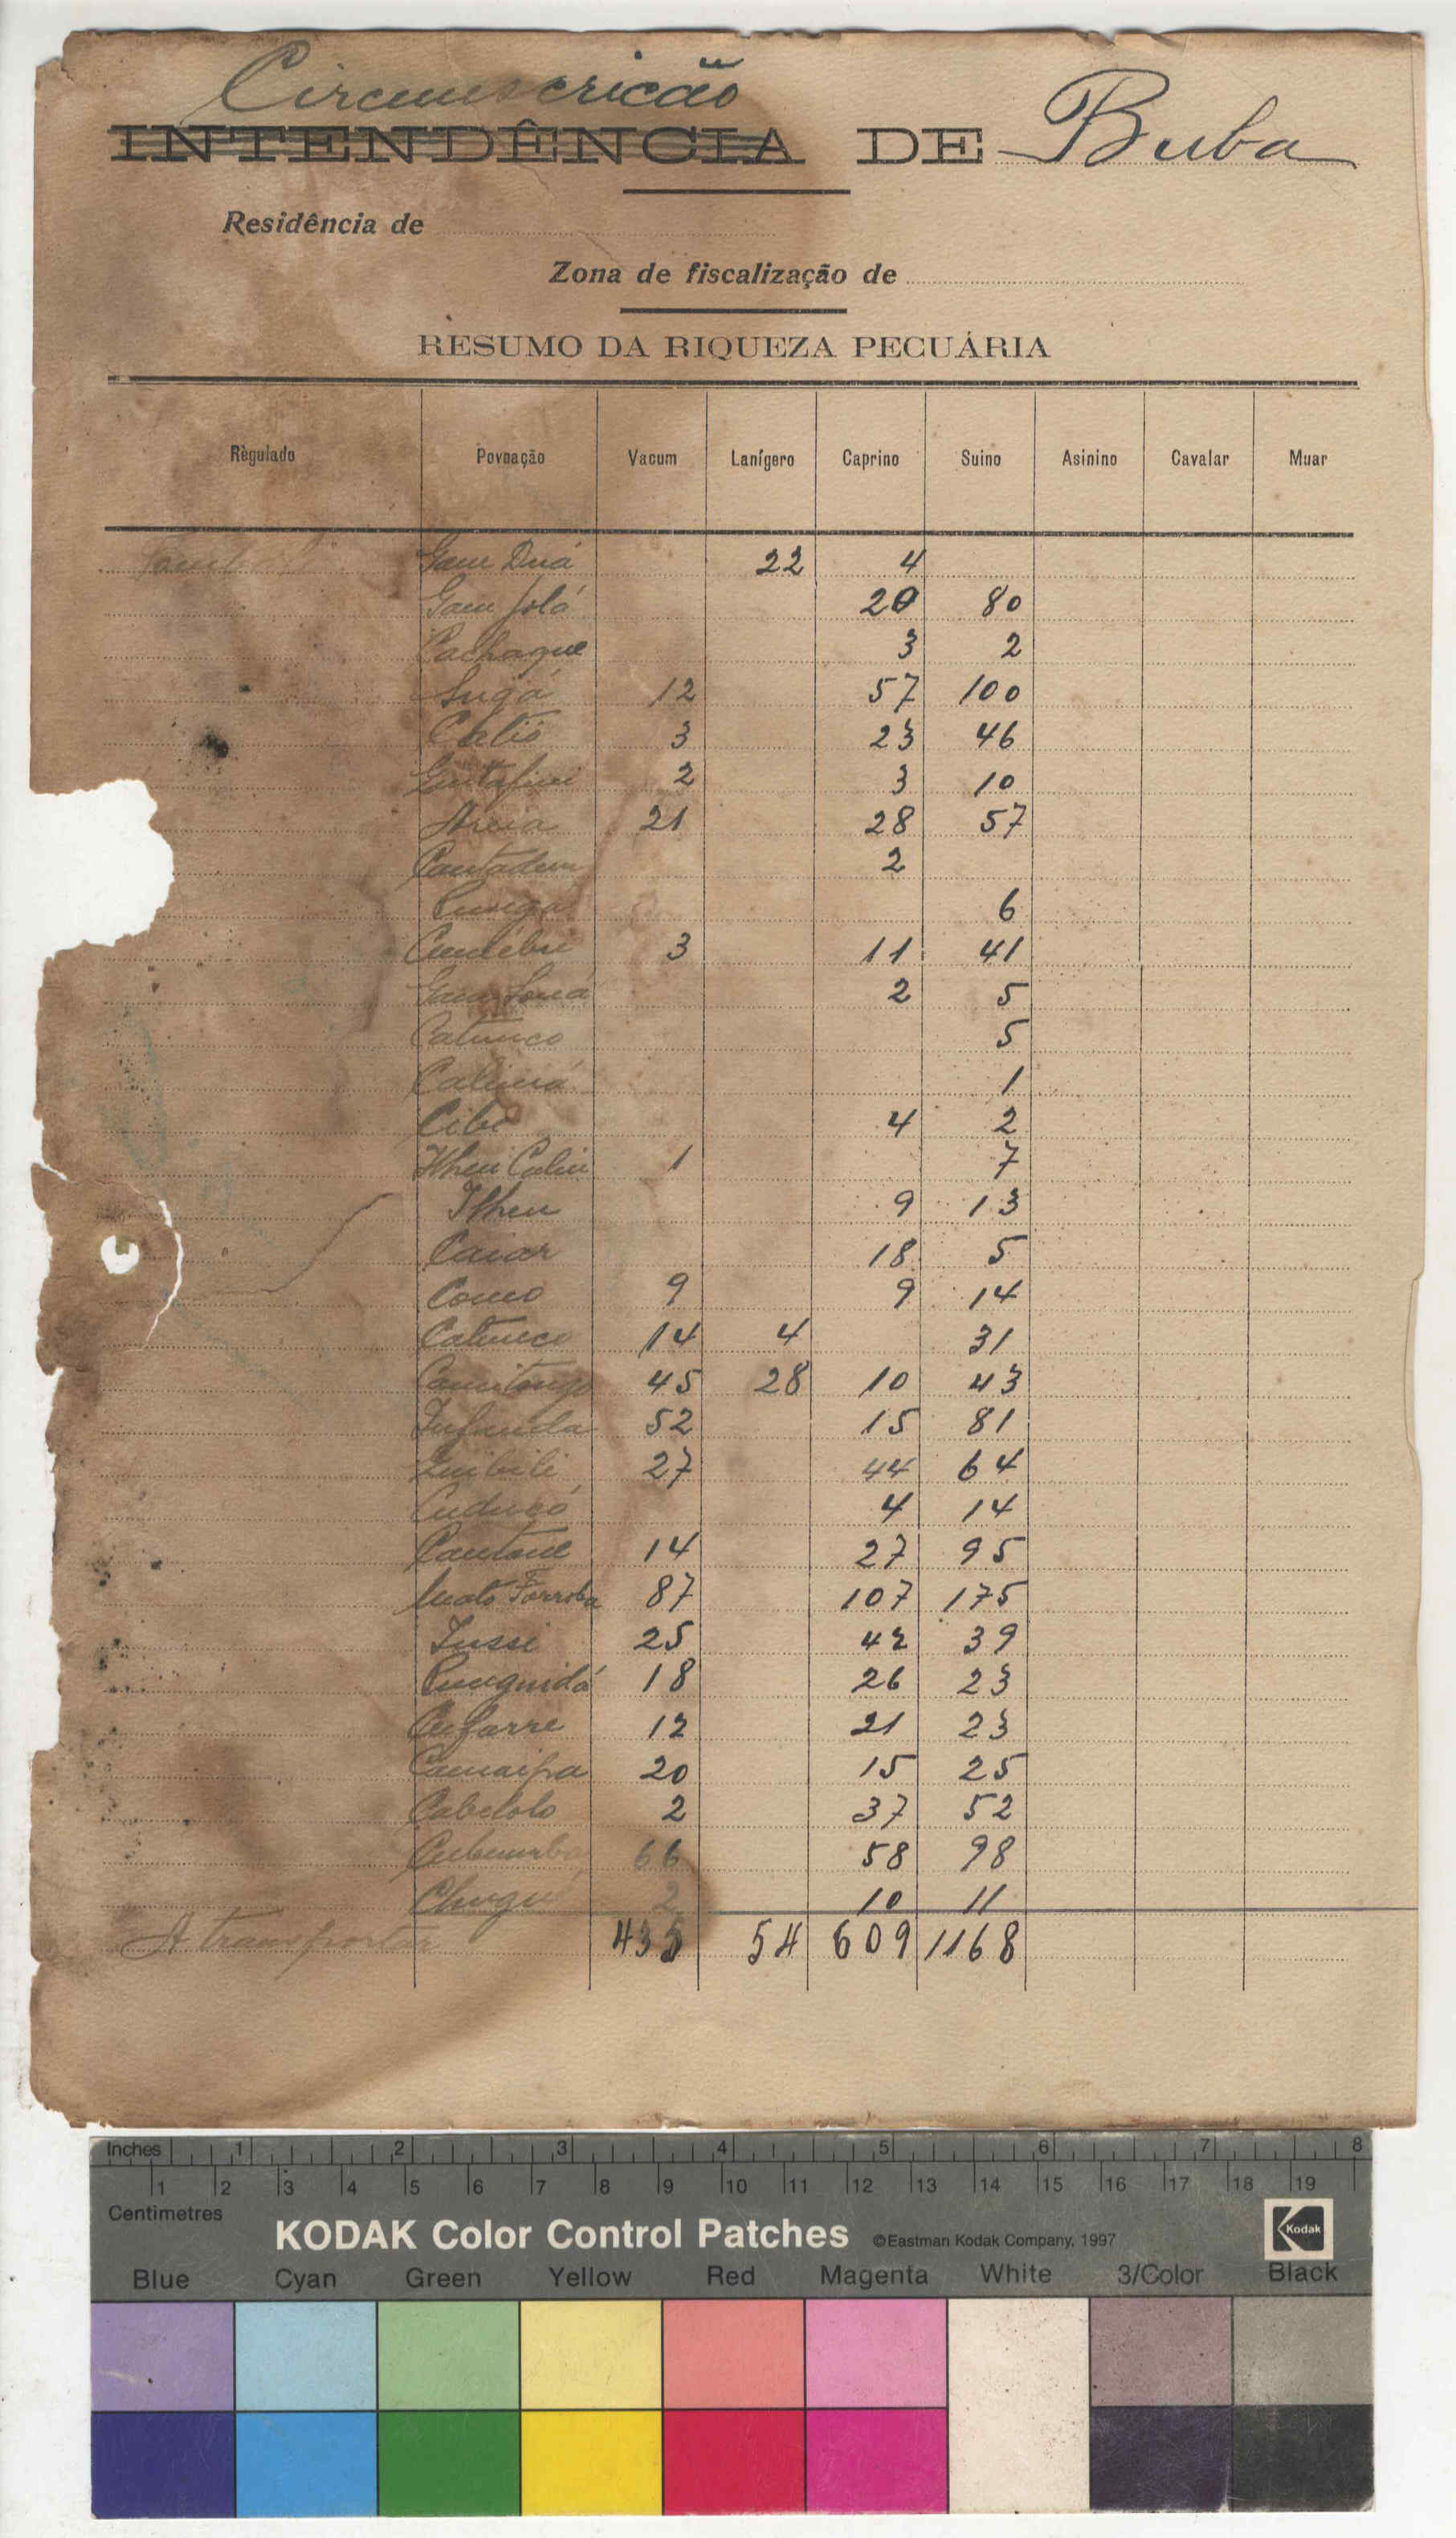 Circumscrição
INTENDÊNCIA DE Buba
Residência de
Zona de fiscalização de
RESUMO DA RIQUEZA PECUÁRIA
Règulado Povoação Vacum Lanígero Caprino Suino Asinino Cavalar Muar
Gam Duá 22 4
Gam Jolá 20 80
Cachaque 3 2
Sugá 12 57 100
Catió 3 23 46
2 3 10
Areia 21 28 57
2
6
3 11 41
2 5
Catunco 5
1
Cibi 4 2
Ilheu 1 7
Ilheu 9 13
Caiar 18 5
Como 9 9 14
Catunco 14 4 31
45 28 10 43
52 15 81
27 44 64
Cuducó 4 14
Cantone 14 27 95
Mato Farroba 87 107 175
25 42 39
18 26 23
Cufarre 12 21 23
Camaifa 20 15 25
Cabelolo 2 37 52
66 58 98
Chugué 2 10 11
A transportar 435 54 609 1168
Inches 1 2 3 4 5 6 7 8
1 2 3 4 5 6 7 8 9 10 11 12 13 14 15 16 17 18 19
Centimetres
KODAK Color Control Patches ©Eastman Kodak Company, 1997 Kodak
Blue Cyan Green Yellow Red Magenta White 3/Color Black